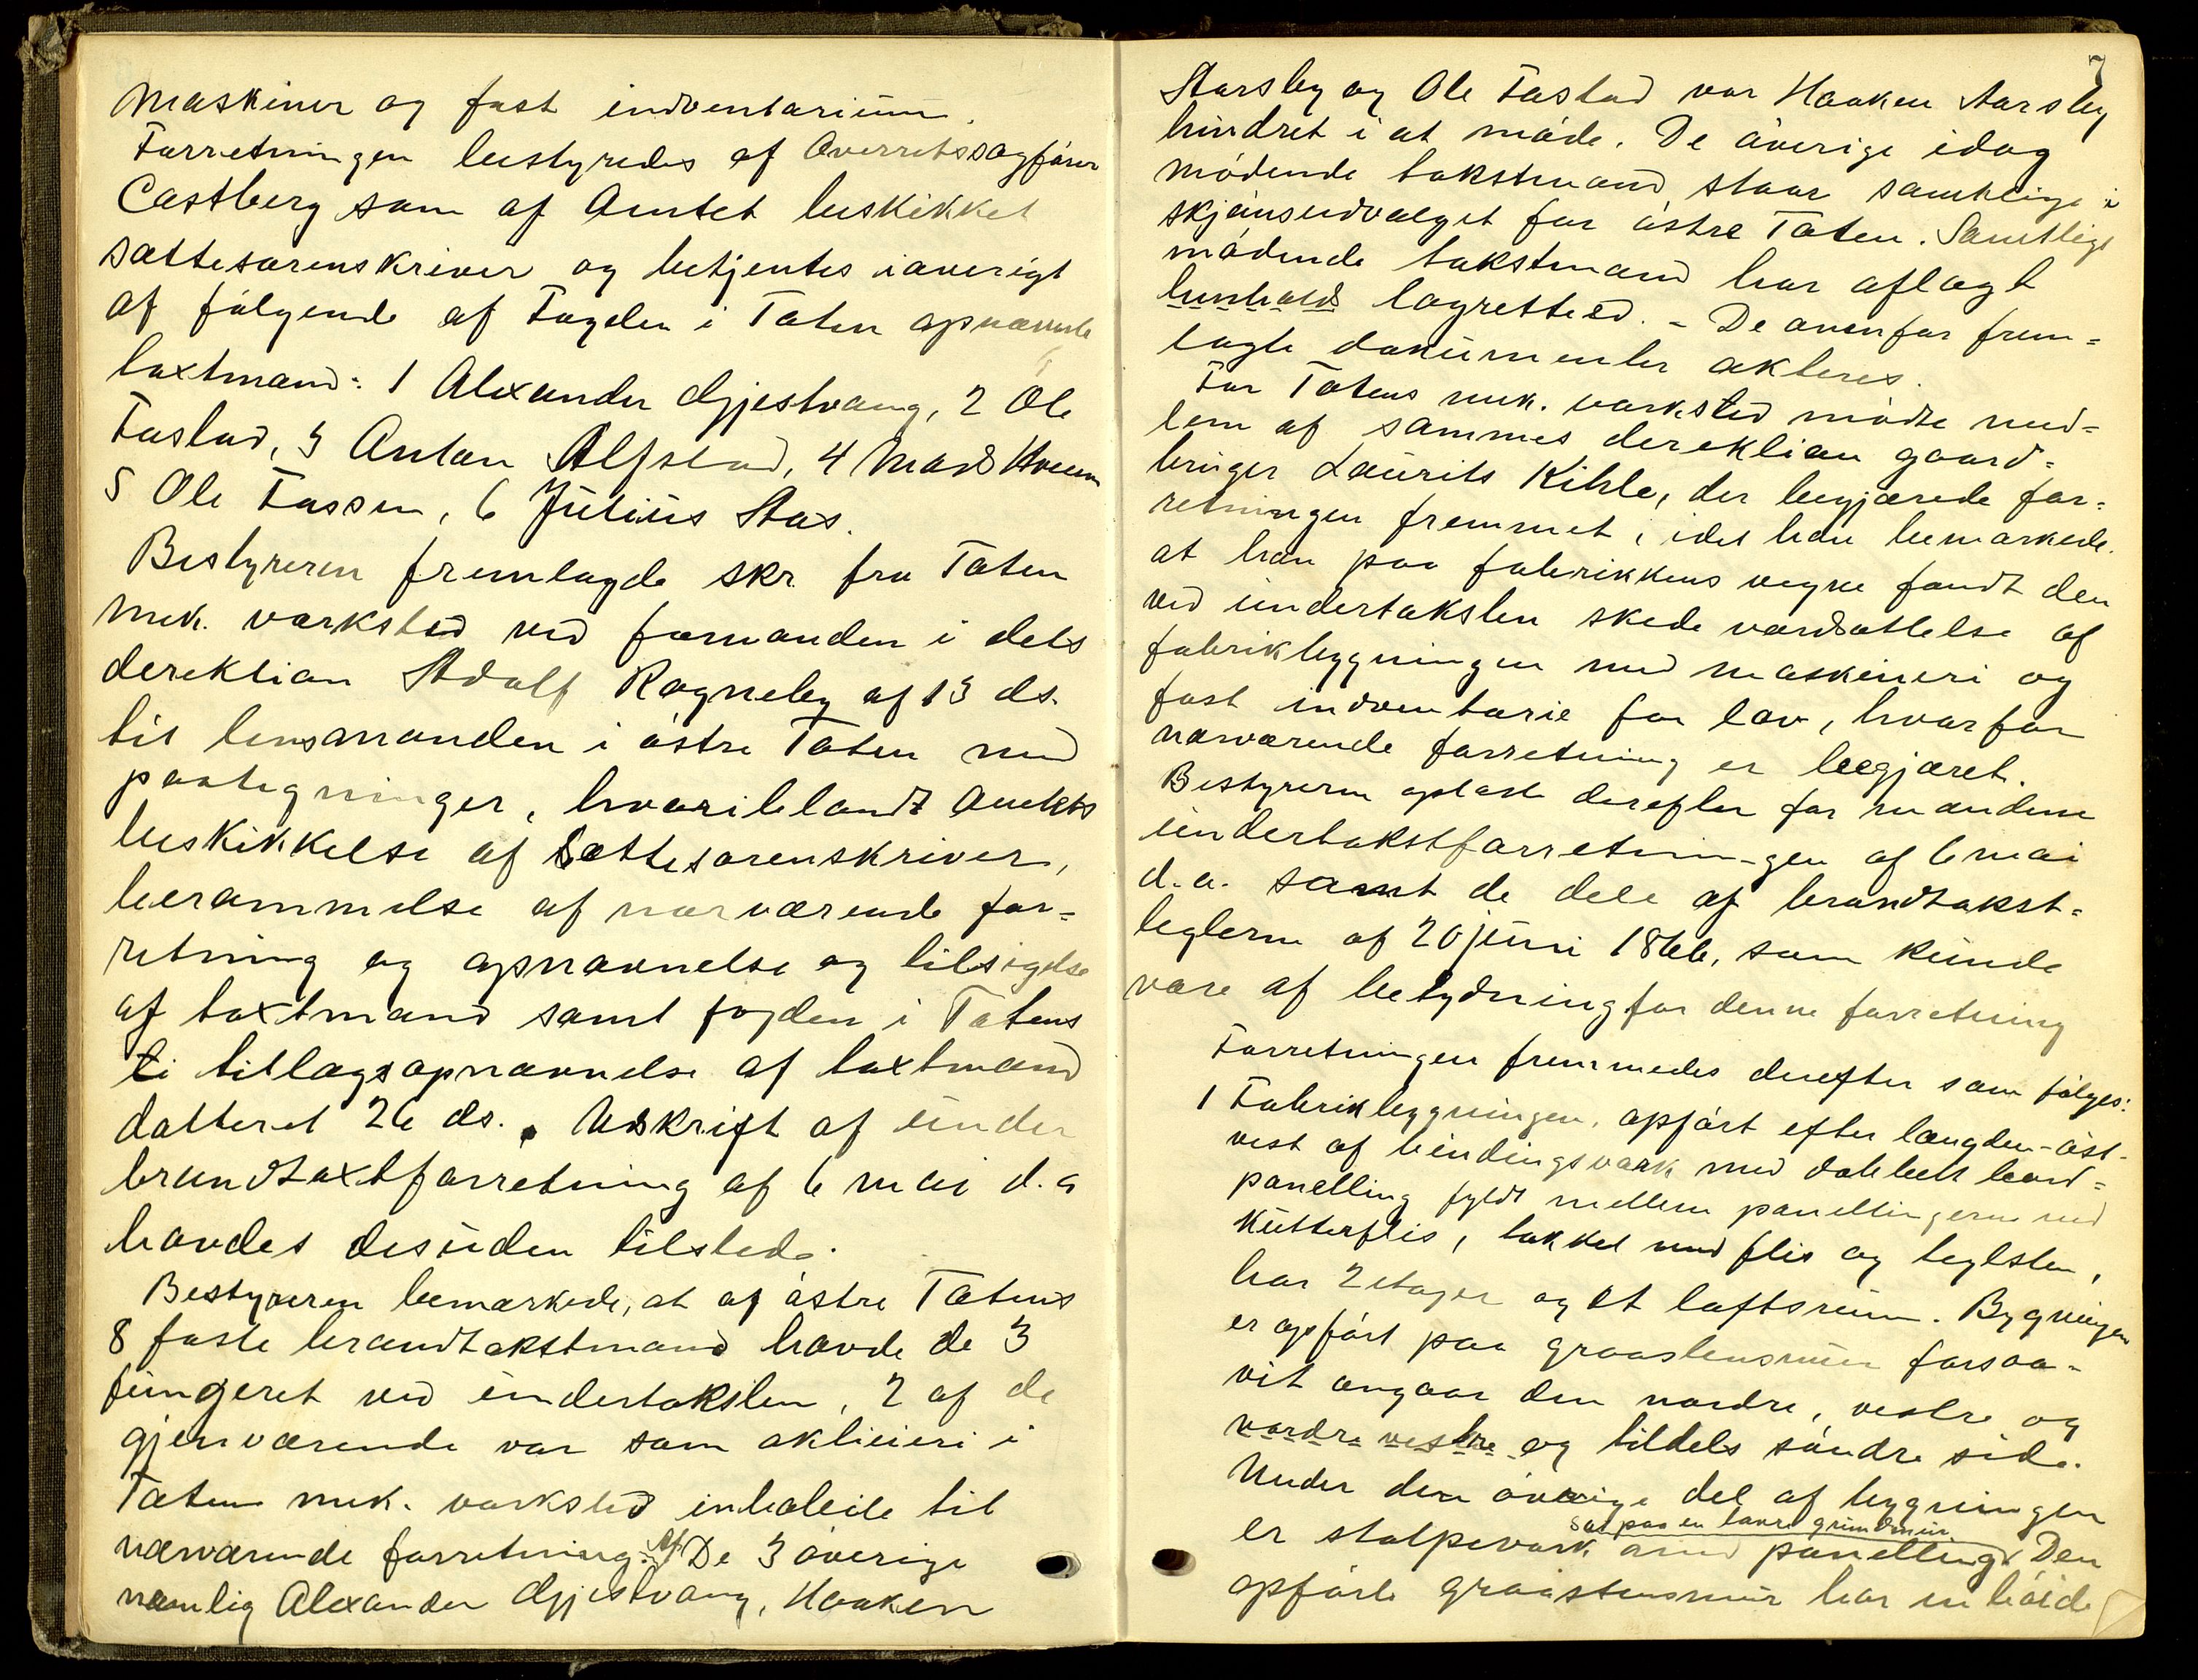 Maskiner og fast indventarium.
Forretningen bestyredes af Overretssagfører
Castberg som af Amtet beskikket
sættesorenskriver og betjentes iøverigt
af følgende af Fogden i Toten opnævnte
taxtmænd: 1 Alexander Gjestvang, 2 Ole
Fastad, 3 Anton Alfstad, 4 Mads Hveem
5 Ole Fossen, 6 Julius Aas.
Bestyreren fremlagde skr. fra Toten
mek. værksted ved formanden i dets
derektion Adolf Rogneby af 13 ds.
til lensmanden i østre Toten med
paategninger, hvoriblandt Amtets
beskikkelse af Sættesorenskriver,
berammelse af nærværende for=
retning og opnævnelse og tilsigelse
af taxtmænd samt fogden i Totens
ti tillægsopnævnelse af taxtmænd
datteret 26 ds. Udskrift af under
brandtaxtforretning af 6 mai d.a
havdes desuden tilstede.
Bestyreren bemærkede, at af østre Totens
8 faste brandtakstmænd havde de 3
fungeret ved undertaksten, 2 af de
gjenværende var som aktieieri i
Toten mek. værksted inhabile til
nærværende forretning. Af De 3 øverige
nemlig Alexander Gjestvang, Haaken
7
Aarsby og Ole Fastad var Haaken Aarsby
hindret i at møde. De øverige idag
mødende takstmænd staar samtlige i
skjønsudvalget for østre Toten. Samtlige
mødende takstmænd har aflagt
henhold lagretteed. - De ovenfor frem=
lagte dokumenter akteres.
For Totens mek. værksted mødte med=
lem af sammes derektion gaard=
bruger Laurits Kihle, der begjærede for=
retningen fremmet, idet han bemærkede
at han paa fabrikkens vegne fandt den
ved undertaksten skede værdsættelse af
fabrikbygningen med maskineri og
fast indventarie for lav, hvorfor
nærværende forretning er begjæret.
Bestyreren oplæste derefter for mændene
undertakstforretningen af 6 mai
d.a. samt de dele af brandtakst=
reglerne af 20 juni 1866, som kunde
være af betydning for denne forretning
Forretningen fremmedes derefter som følges:
1 Fabrikbygningen, opført efter længden-øst-
vest af bindingsværk med dobbelt bord=
panelling fyldt mellem panellingerne med
Kutterflis, tækket med flis og teglsten,
har 2 etager og et loftsrum. Bygningen
er opført paa graastensmur forsaa-
vit angaar den nordre, vestre og
nordre vestre og tildels søndre side.
Under den øverige del af bygningen
sat paa en lavre grundmur
er stolpeværk med panelling. Den
opførte graastensmur har en høide